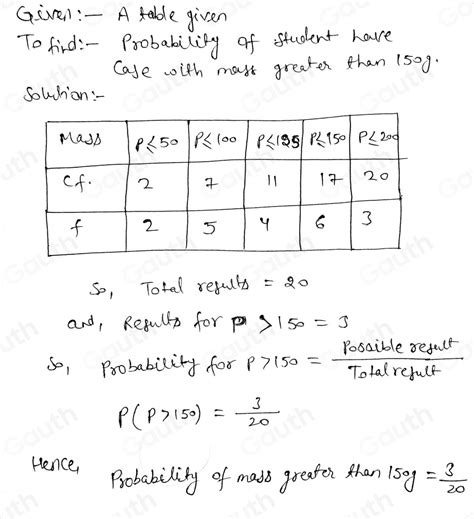 Given:- A table given
To find:- Probability of student have
Case with mass greater than 150g.
Solution:-
Mass P≤50 P≤100 P≤125 P≤150 P≤200
Cf. 2 7 11 17 20
f 2 5 4 6 3
So, Total results = 20
and, Results for p >150 = 3
So, Probability for P>150 = Possible result
Total result
P(P>150) = 3/20
Hence, Probability of mass greater than 150g = 3/20
Gauth